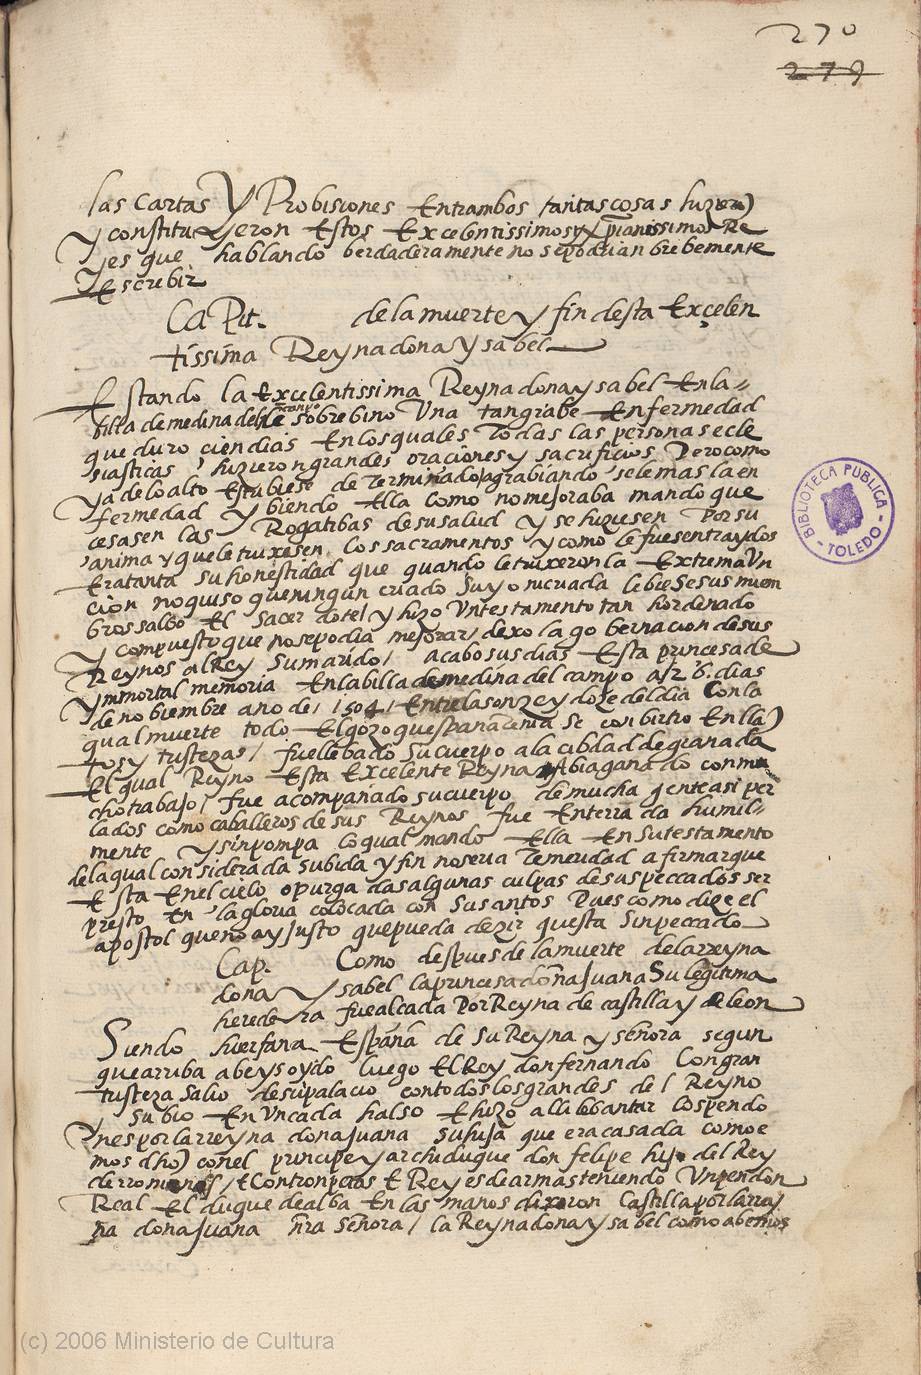 270
279
las cartas Y Probisiones Entrambos tantas cosas huziero)
y constituyeron Estos Excelentissimos y xpianissimos Re
yes que hablando berdaderamente no se podrian brebemente
Escrebir
Capit. de la muerte y fin desta Excelen
tissima Reyna dona ysabel
Estando la Excelentissima Reyna dona ysabel En la
billa de medina del le sobre bino Una tan grabe Enfermedad
que duro cien dias En los quales Todas las personas ecle
siasticas huzieron grandes oraciones y sacrificios Pero como
ya de lo alto Estubiese determinado agrabiando sele mas la en
fermedad y biendo Ella como no mejoraba mando que
cesasen las Rogatibas de su salud y se huziesen por su
anima y que le truxesen los sacramentos y como le fuesen traydos
Era tanta su honestidad que quando le truxeron la Extrema Un
cion no quiso que ningun criado suyo ni criada le biese sus miem
bros salbo El sacerdote / y hizo Un testamento tan hordenado
y compuesto que no se podia mejorar / dexo la gobernacion de sus
Reynos al Rey su marido / acabo sus dias Esta princesa de
ymmortal memoria En la billa de medina del campo a / 26. dias
de nobiembre año de / 1504 / Entre las onze y doze del dia Con la
qual muerte todo El gozo que españa tenia Se conbirtio En lla)
tos y tristezas / fue llebado su cuerpo a la cibdad de granada
El qual Reyno Esta Excelente Reyna Abia ganado con mu
cho trabajo / fue acompañado su cuerpo de mucha gente asi per
lados como caballeros de sus Reynos fue Enterrada humil
mente y sin pompa lo qual mando Ella En su testamento
de la qual considerada su bida y fin no seria Temeridad afirmar que
Esta En el cielo o purgadas algunas culpas de sus peccados ser
presto En la gloria colocada con sus santos Pues como dize el
apostol que no ay justo que pueda dezir questa sin peccado
Cap. Como despues de la muerte de la rreyna
dona ysabel la princesa doña Juana Su legitima
heredera fue alcada Por Reyna de castilla y de leon
Siendo huerfana España de su Reyna y señora segun
que arriba abeys oydo luego El Rey don fernando Con gran
tristeza salio de su palacio con todos los grandes del Reyno
subio En Un cadahalso E hizo alli lebantar los pendo
nes por la rreyna dona Juana su hija que era casada como e
mos dho) con el principe y archiduque don felipe hijo del Rey
de rromanos / E con trompetas E Reyes de armas teniendo Un pendon
Real El duque de alba En las manos dixeron Castilla por la rrey
na dona Juana nra Señora / la Reyna dona ysabel como abemos
BIBLIOTECA PUBLICA
- TOLEDO -
(c) 2006 Ministerio de Cultura